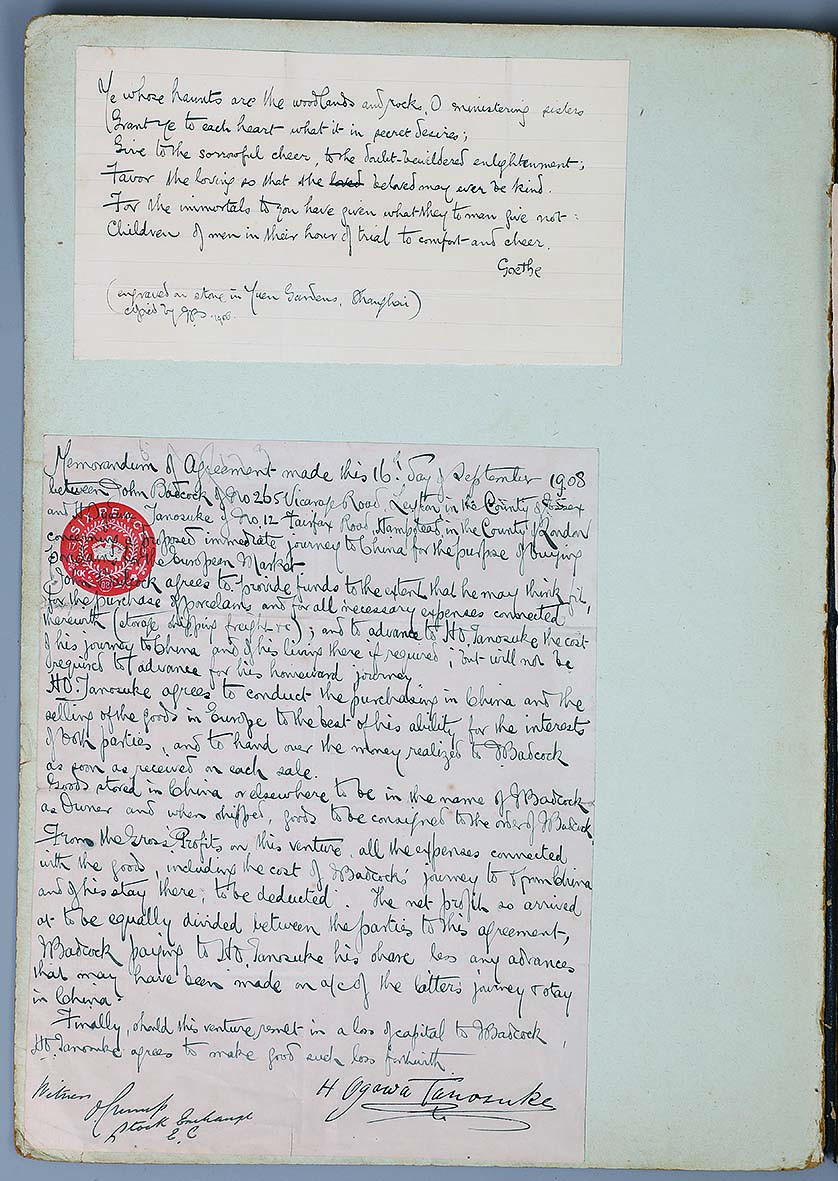 Ye whose haunts are the woodlands and rocks, O ministering sisters
Grant ye to each heart what it in secret desires;
Give to the sorrowful cheer, to the doubt-bewildered enlightenment;
Favor the loving so that the loved beloved may ever be kind.
For the immortals to you have given what they to man give not:
Children of men in their hour of trial to comfort and cheer.
Goethe
(engraved on stone in Yuen Gardens, Shanghai)
copied by 1908
Memorandum of Agreement made this 16th day of September 1908
between John Badcock of No 265 Vicarage Road, Leyton, in the County of Essex
and H. Ogawa Tanosuke of No. 12 Fairfax Road, Hampstead, in the County of London
concerning a proposed immediate journey to China for the purpose of buying
Porcelains for the European Market.
SIX PENCE
John Badcock agrees to provide funds to the extent that he may think fit,
for the purchase of porcelains and for all necessary expenses connected
therewith (storage shipping freight &c); and to advance to H.O. Tanosuke the cost
of his journey to China and of his living there if required; but will not be
required to advance for his homeward journey
H.O. Tanosuke agrees to conduct the purchasing in China and the
selling of the goods in Europe to the best of his ability for the interests
of both parties, and to hand over the money realized to J Badcock
as soon as received on each sale.
Goods stored in China or elsewhere to be in the name of J Badcock
as Owner and when shipped, goods to be consigned to the order of J Badcock.
From the Gross Profits on this venture, all the expenses connected
with the goods, including the cost of J Badcock's journey to & from China
and of his stay there, to be deducted. The net profit so arrived
at to be equally divided between the parties to this agreement,
J Badcock paying to H.O. Tanosuke his share less any advances
that may have been made on a/c of the latter's journey & stay
in China.
Finally, should this venture result in a loss of capital to J Badcock,
H.O. Tanosuke agrees to make good such loss forthwith.
H Ogawa Tanosuke
Witness
Stock Exchange
E.C